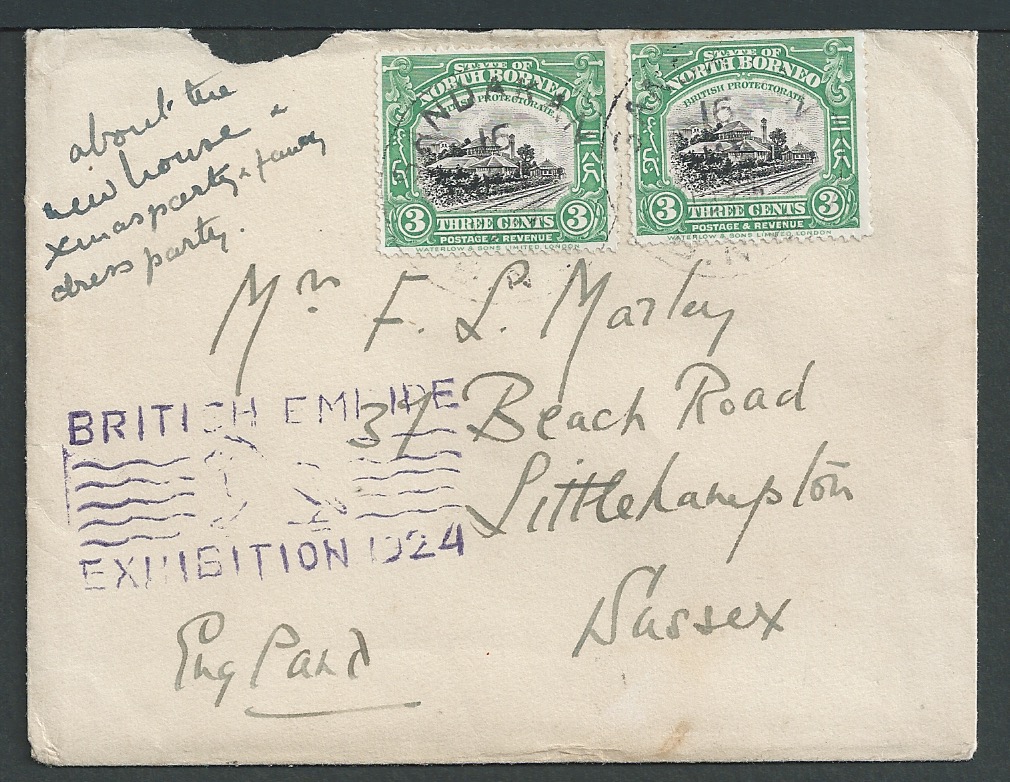 about the
new house &
xmas party & fancy
dress party.
STATE OF
NORTH BORNEO
BRITISH PROTECTORATE
3 THREE CENTS 3
POSTAGE & REVENUE
WATERLOW & SONS LIMITED, LONDON
SANDAKAN
16
STATE OF
NORTH BORNEO
BRITISH PROTECTORATE
3 THREE CENTS 3
POSTAGE & REVENUE
WATERLOW & SONS LIMITED, LONDON
16
Mrs F. L. Marley
37 Beach Road
Littlehampton
Sussex
England
BRITISH EMPIRE
EXHIBITION 1924